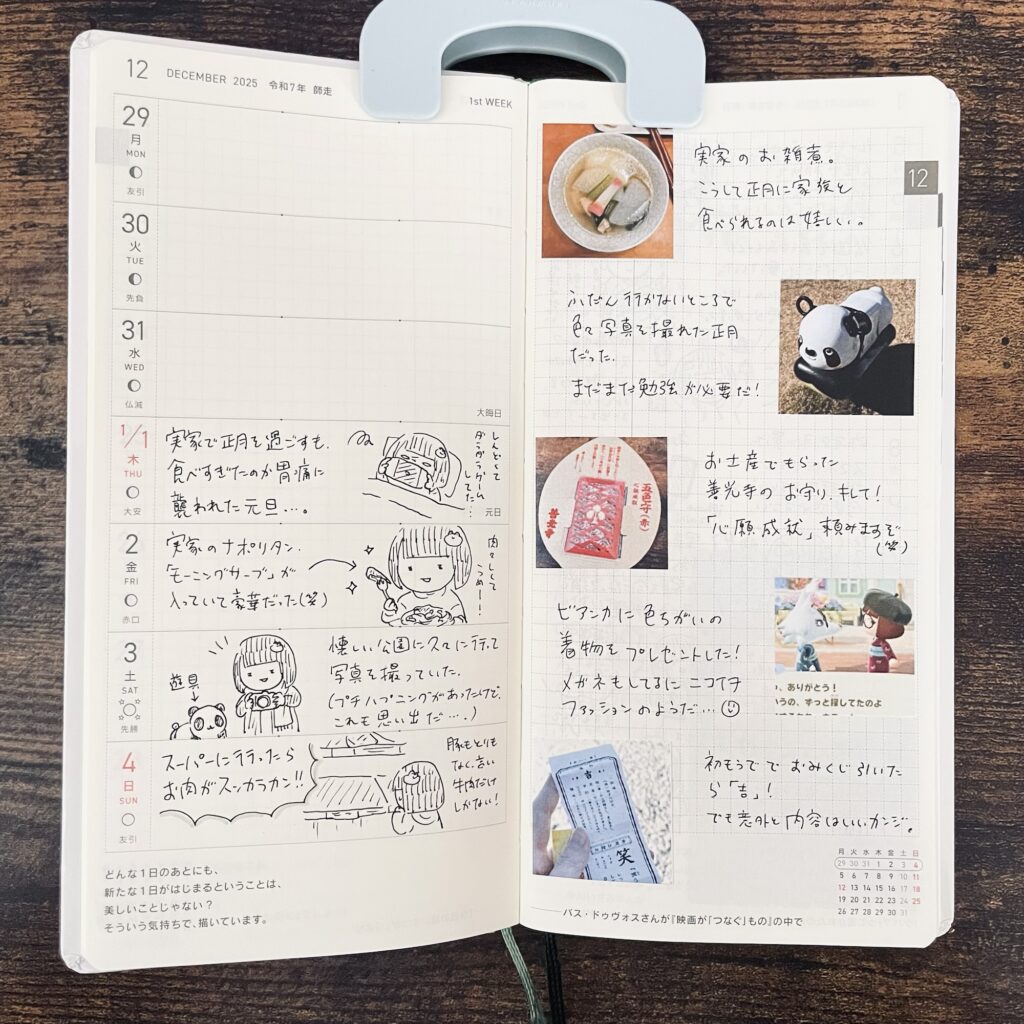 12 DECEMBER 2025 令和7年 師走
1st WEEK
29
月
MON
友引
30
火
TUE
先負
31
水
WED
仏滅
大晦日
1/1
木
THU
大安
実家で正月を過ごすも、
食べすぎたのか胃痛に
襲われた元旦…。
しんどくて
ダラダラゲーム
してた…
元日
2
金
FRI
赤口
実家のナポリタン。
「モーニングサーブ」が
入っていて豪華だった(笑)
肉々しくて
うめー!
3
土
SAT
先勝
遊具
懐しい公園に久々に行って
写真を撮っていた。
(プチハプニングがあったけど、
これも思い出だ…。)
4
日
SUN
友引
スーパーに行ったら
お肉がスッカラカン!!
豚もとりも
なく、高い
牛肉だけ
しかない!
どんな1日のあとにも、
新たな1日がはじまるということは、
美しいことじゃない?
そういう気持ちで、描いています。
12
実家のお雑煮。
こうして正月に家族と
食べられるのは嬉しい。
ふだん行かないところで
色々写真を撮れた正月
だった。
まだまだ勉強が必要だ!
五色守(赤)
善光寺
お土産でもらった
善光寺のお守り。キレイ!
「心願成就」頼みますぞ
(笑)
ビアンカに色ちがいの
着物をプレゼントした!
メガネもしてるしニコイチ
ファッションのようだ…
、ありがとう!
いうの、ずっと探してたのよ
吉
笑
初もうででおみくじ引いた
ら「吉」!
でも意外と内容はいいカンジ。
月 火 水 木 金 土 日
29 30 31 1 2 3 4
5 6 7 8 9 10 11
12 13 14 15 16 17 18
19 20 21 22 23 24 25
26 27 28 29 30 31
バス・ドゥヴォスさんが『映画が「つなぐ」もの』の中で